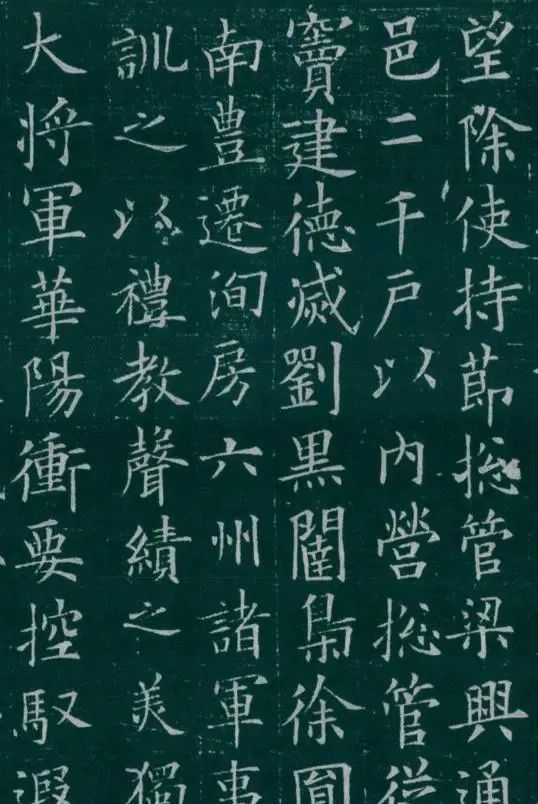 望除使持節捴管梁興通
邑二千戶以內營捴管従
竇建德滅劉黒闥梟徐圎
南豊遷洵房六州諸軍事
訓之以禮教聲績之美獨
大将軍華陽衝要控馭遐